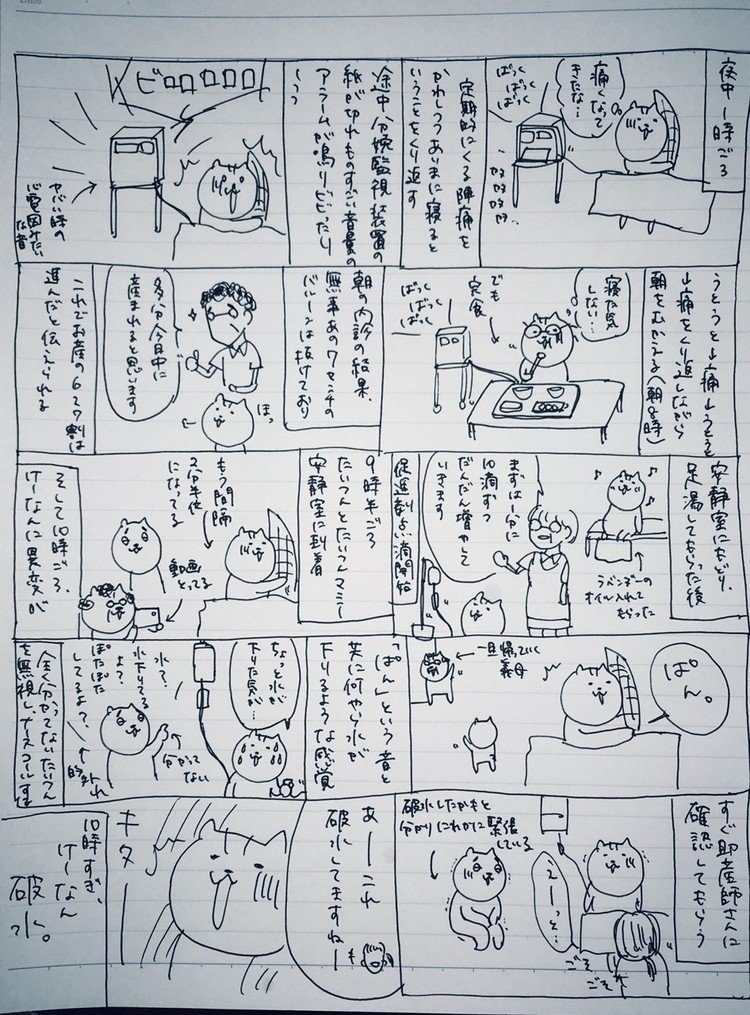 夜中1時ごろ
痛くなって
きたな…
ばっく
ばっく
ばっく
定期的にくる陣痛を
かわしつつあいまに寝ると
いうことをくり返す
途中、分娩監視装置の
紙が切れものすごい音量の
アラームが鳴りビビったり
しつつ
ビロロロロロ
ヤバい時の
心電図みたい
な音
うとうと→痛→うとうと
→痛をくり返しながら
朝をむかえる(朝8時)
寝た気
しない…
でも
完食
ばっく
ばっく
ばっく
朝の内診の結果、
無事あの7センチの
バルーンは抜けており
ほっ
多分今日中に
産まれると思います
これでお産の6〜7割は
進んだと伝えられる
安静室にもどり、
足湯してもらった後
♪
♪
ラベンダーの
オイル入れて
もらった
まずは1分に
10滴ずつ
だんだん増やして
いきます
促進剤点滴開始
9時半ごろ
たいつんとたいつんマミー
安静室に到着
もう間隔
2分半位
になってる
動画
とってる
そして10時ごろ、
けーなんに異変が
ぱん。
一旦帰っていく
義母
「ぱん」という音と
共に何やら水が
下りるような感覚
ちょっと水が
下りた気が…
水?
水下りてる
よ?
ぽたぽた
してるよ?
分かって
ない
的外れ
全く分かってないたいつん
を無視し、ナースコールす
すぐ助産師さんに
確認してもらう
えーっと…
ごそ
ごそ
破水したかもと
分かりにわかに緊張
している
あーこれ
破水してますねー
キター
10時すぎ、
けーなん
破水。